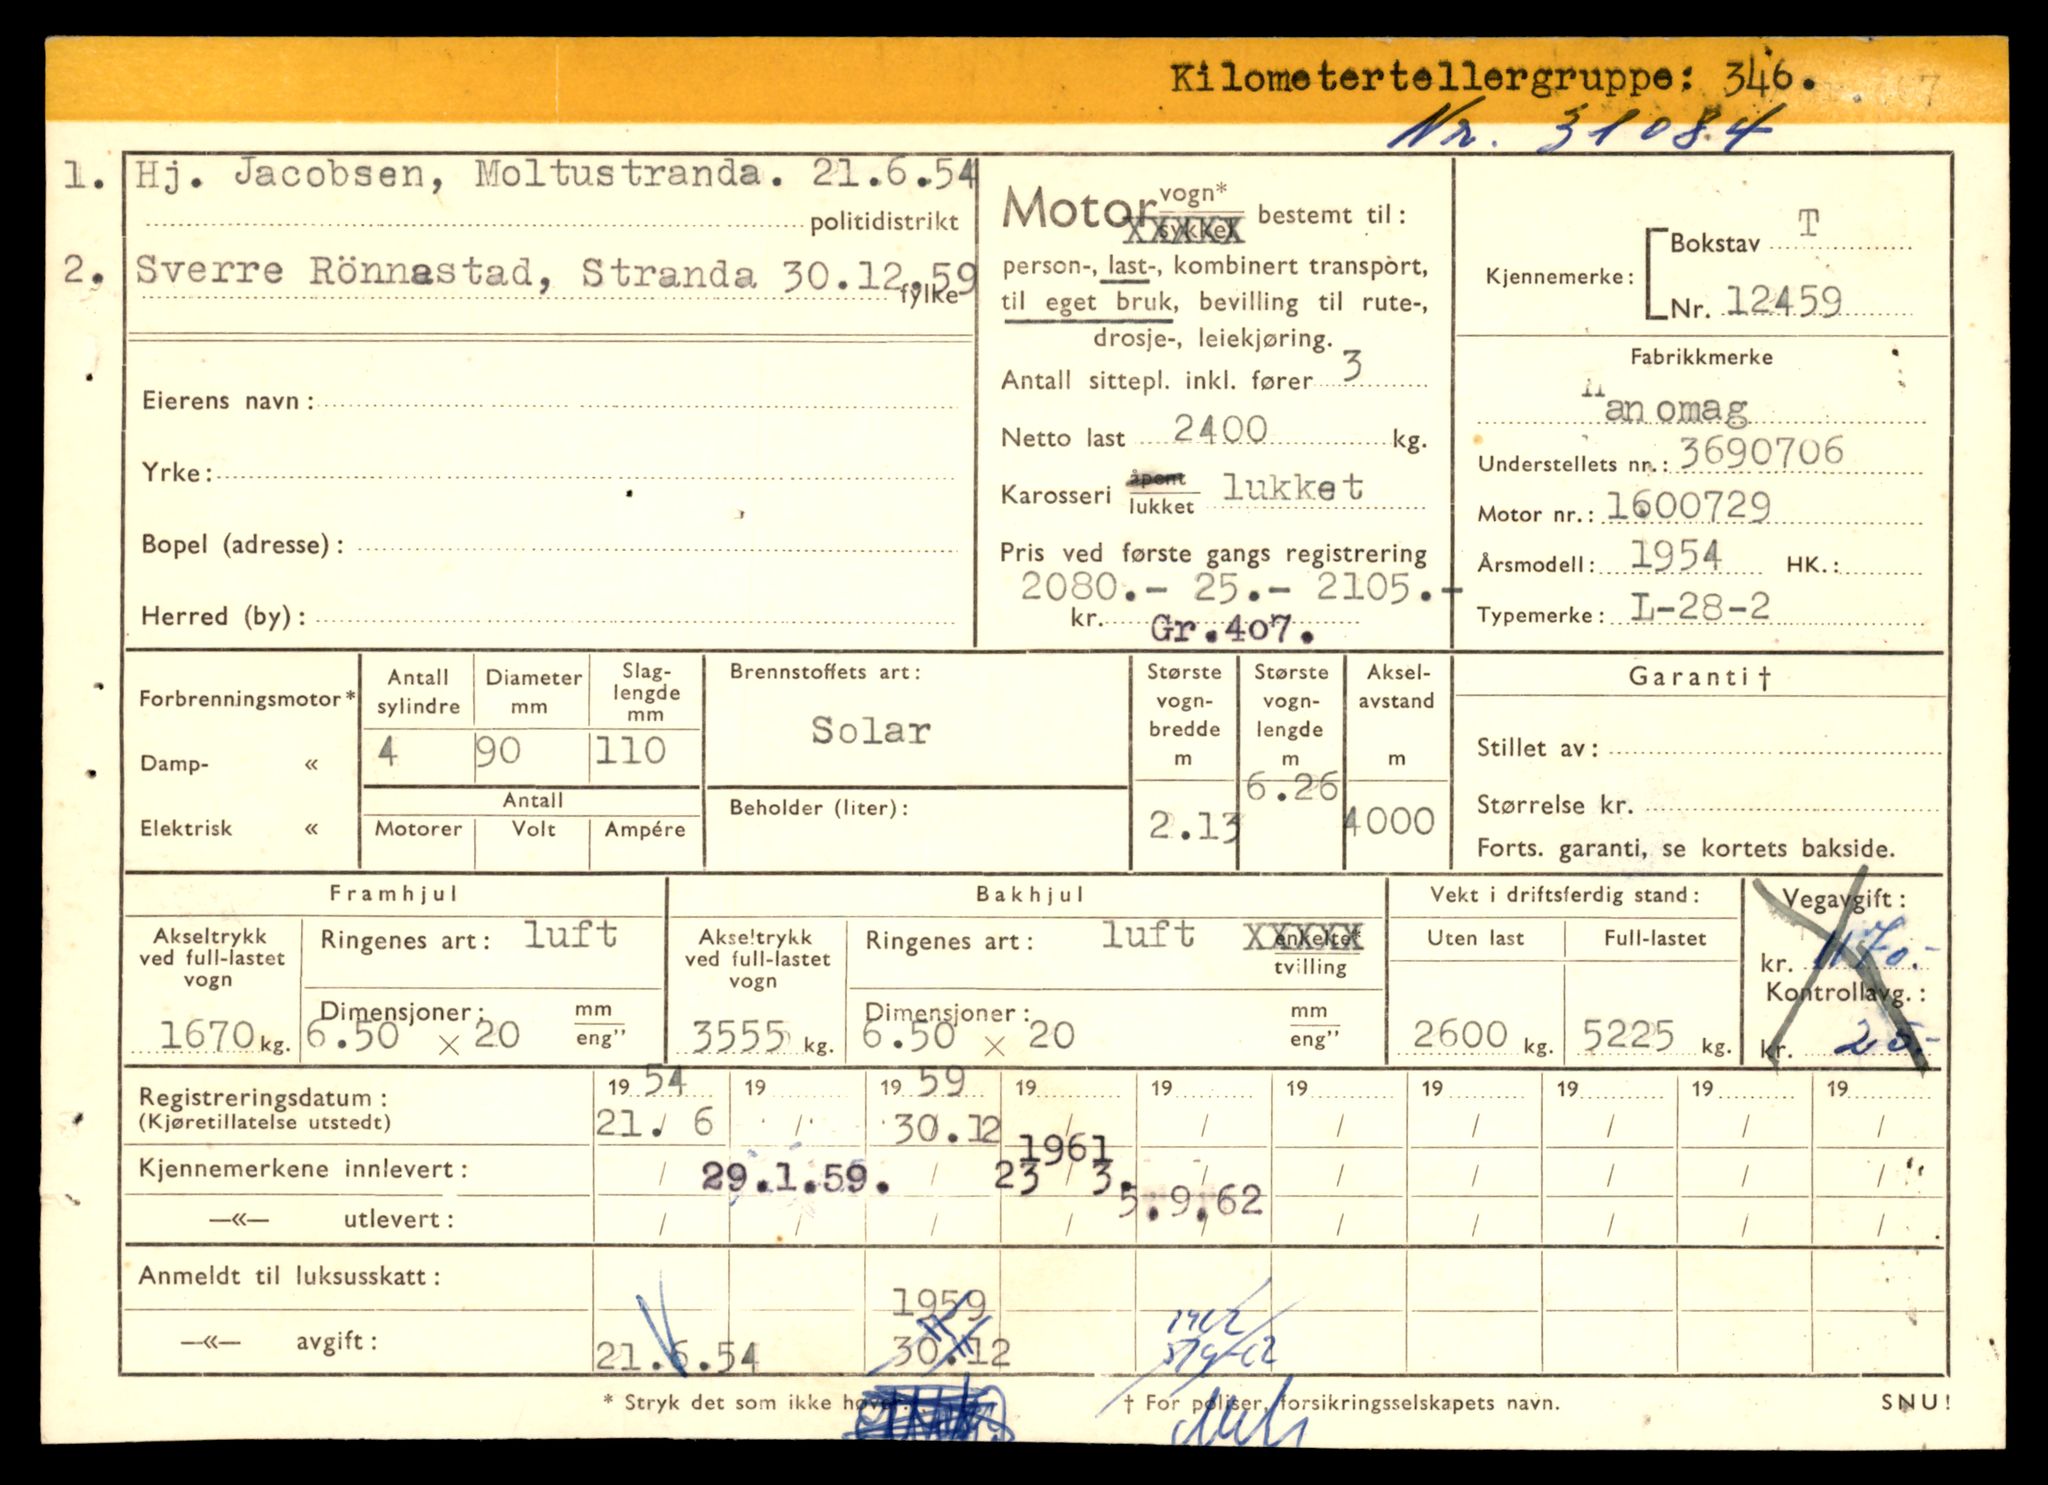 Kilometertellergruppe: 346.
Nr. 31084
1. Hj. Jacobsen, Moltustranda. 21.6.54
politidistrikt
2. Sverre Rönnestad, Stranda 30.12.59
fylke
Eierens navn:
Yrke:
Bopel (adresse):
Herred (by):
Motor vogn* / sykkel bestemt til:
XXXXX
person-, last-, kombinert transport,
til eget bruk, bevilling til rute-,
drosje-, leiekjøring.
Antall sittepl. inkl. fører 3
Netto last 2400 kg.
Karosseri åpent / lukket lukket
Pris ved første gangs registrering
2080.- 25.- 2105.-
kr. Gr.407.
Kjennemerke: Bokstav T
Nr. 12459
Fabrikkmerke
Hanomag
Understellets nr.: 3690706
Motor nr.: 1600729
Årsmodell: 1954 HK.:
Typemerke: L-28-2
Forbrenningsmotor*
Damp- «
Elektrisk «
Antall sylindre
4
Diameter mm
90
Slag-lengde mm
110
Antall
Motorer Volt Ampére
Brennstoffets art:
Solar
Beholder (liter):
Største vogn-bredde m
2.13
Største vogn-lengde m
6.26
Aksel-avstand m
4000
Garanti †
Stillet av:
Størrelse kr.
Forts. garanti, se kortets bakside.
Framhjul
Akseltrykk ved full-lastet vogn
1670 kg.
Ringenes art: luft
Dimensjoner: mm / eng"
6.50 x 20
Bakhjul
Akseltrykk ved full-lastet vogn
3555 kg.
Ringenes art: luft XXXXX enkelte* / tvilling
Dimensjoner: mm / eng"
6.50 x 20
Vekt i driftsferdig stand:
Uten last Full-lastet
2600 kg. 5225 kg.
Vegavgift:
kr.
Kontrollavg.:
kr. 25.-
Registreringsdatum: 19 54 19 19 59 19 19 19 19 19 19 19
(Kjøretillatelse utstedt) 21. 6 30.12
1961
Kjennemerkene innlevert: 29.1.59. 23 3.
—«— utlevert: 5.9.62
Anmeldt til luksusskatt:
1959
—«— avgift: 21.6.54 30.12
* Stryk det som ikke høver. † For poliser, forsikringsselskapets navn. SNU!